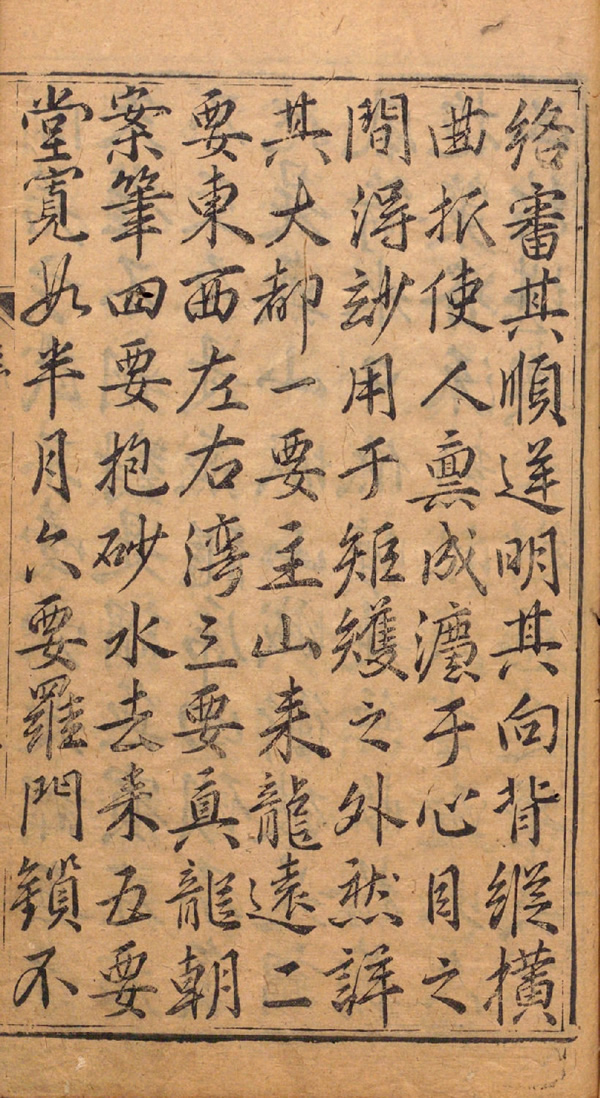 絡審其順逆明其向背縱橫
曲折使人禀成灋于心目之
間得玅用于矩矱之外然詳
其大都一要主山来龍遠二
要東西左右湾三要真龍朝
案筆四要抱砂水去来五要
堂寬如半月六要羅門鎖不